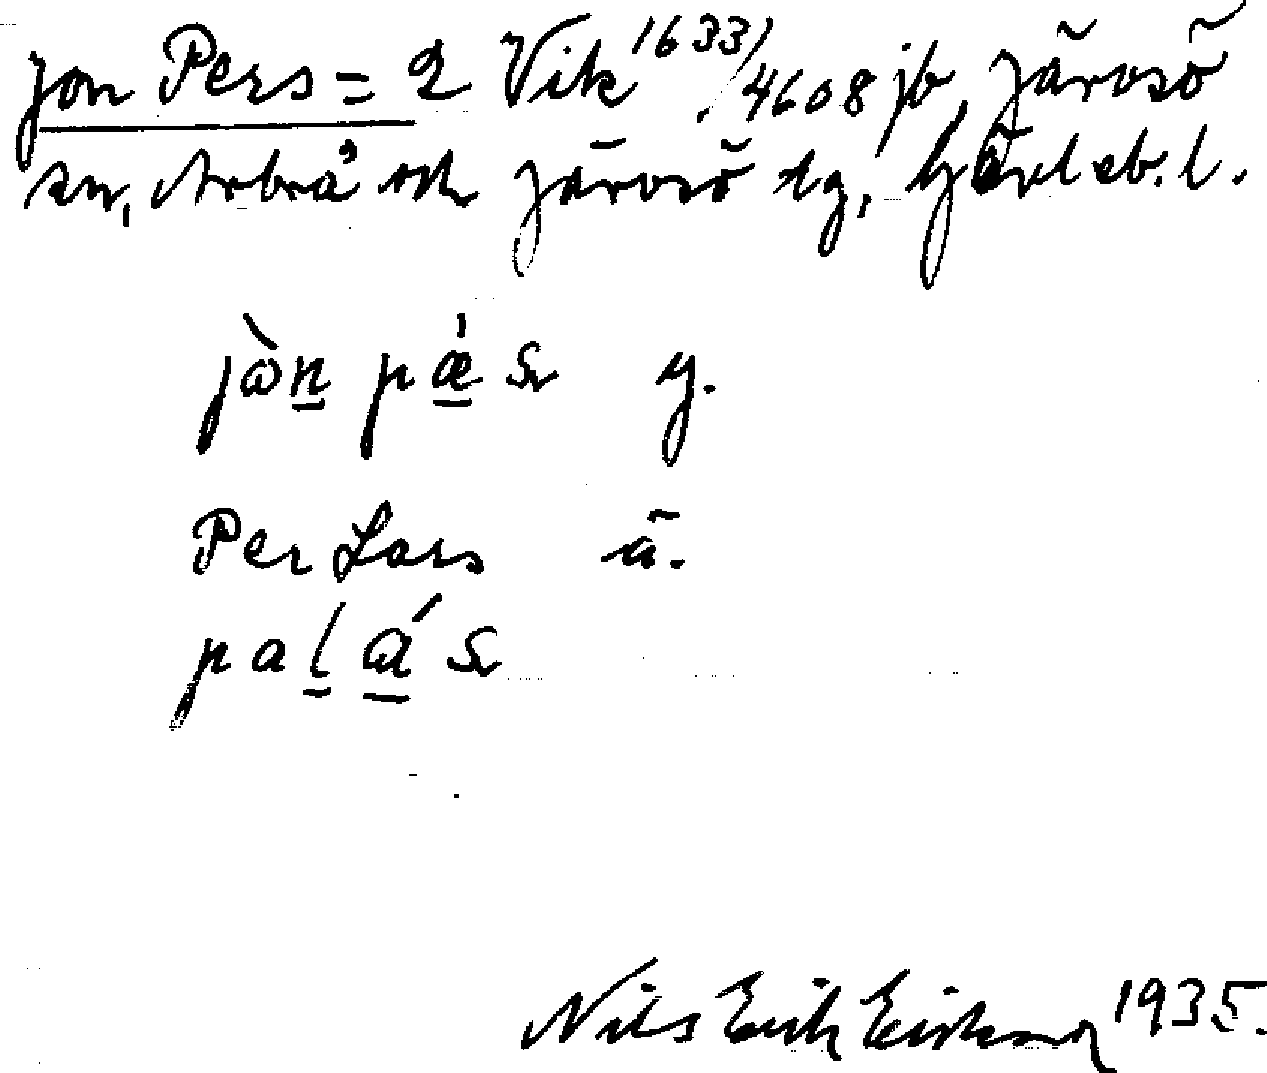 Jon Pers = 2 Vik 1633/4608 jb, Järvsö
sn, Arbrå och Järvsö tg, Gävleb. l.
jòn pǽs y.
Per Lars ä.
palás
Nils Erik Eriksson 1935.